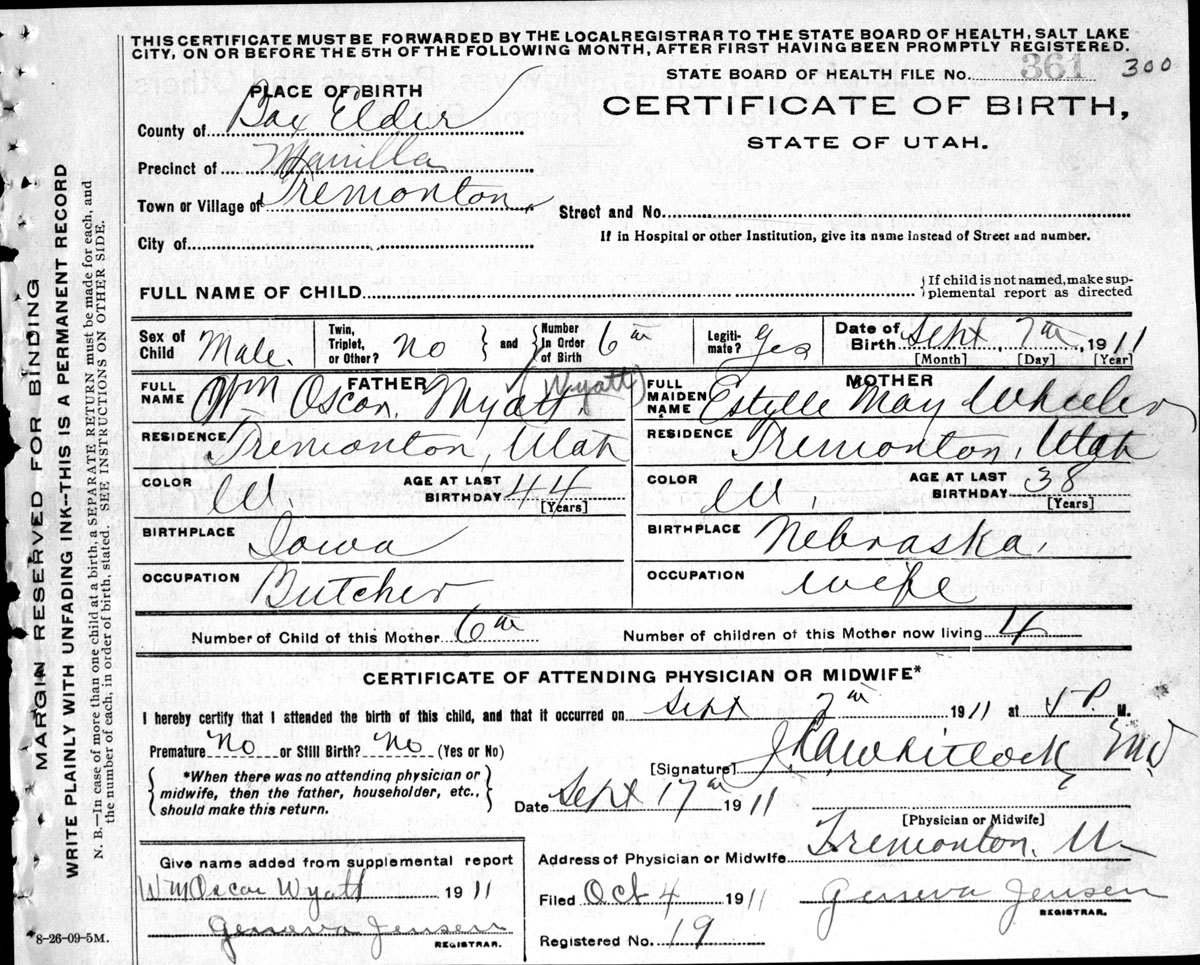 THIS CERTIFICATE MUST BE FORWARDED BY THE LOCAL REGISTRAR TO THE STATE BOARD OF HEALTH, SALT LAKE
CITY, ON OR BEFORE THE 5TH OF THE FOLLOWING MONTH, AFTER FIRST HAVING BEEN PROMPTLY REGISTERED.
STATE BOARD OF HEALTH FILE No. 361 300
PLACE OF BIRTH
CERTIFICATE OF BIRTH,
STATE OF UTAH.
County of Box Elder
Precinct of Manilla
Town or Village of Tremonton,
Street and No.
City of
If in Hospital or other Institution, give its name instead of Street and number.
FULL NAME OF CHILD
If child is not named, make sup-
plemental report as directed
Sex of Child Male.
Twin, Triplet, or Other? No and Number In Order of Birth 6th
Legiti-mate? Yes
Date of Birth Sept, 7th, 1911
[Month] [Day] [Year]
FATHER
FULL NAME Wm Oscar Myatt. (Wyatt)
MOTHER
FULL MAIDEN NAME Estylle May Wheeler
RESIDENCE Tremonton, Utah
RESIDENCE Tremonton, Utah
COLOR W. AGE AT LAST BIRTHDAY 44 [Years]
COLOR W. AGE AT LAST BIRTHDAY 38 [Years]
BIRTHPLACE Iowa
BIRTHPLACE Nebraska,
OCCUPATION Butcher
OCCUPATION wife
Number of Child of this Mother 6th
Number of children of this Mother now living 4
CERTIFICATE OF ATTENDING PHYSICIAN OR MIDWIFE*
I hereby certify that I attended the birth of this child, and that it occurred on Sept 7th 1911 at P. M.
Premature No or Still Birth? No (Yes or No)
[Signature] Whitlock MD
*When there was no attending physician or
midwife, then the father, householder, etc.,
should make this return.
Date Sept 17th 1911
[Physician or Midwife]
Address of Physician or Midwife Tremonton, U
Give name added from supplemental report
Wm Oscar Wyatt 1911
Geneva Jensen
REGISTRAR.
Filed Oct 4 1911 Geneva Jensen
REGISTRAR.
Registered No. 19
8-26-09-5M.
MARGIN RESERVED FOR BINDING
WRITE PLAINLY WITH UNFADING INK--THIS IS A PERMANENT RECORD
N. B.—In case of more than one child at a birth, a SEPARATE RETURN must be made for each, and
the number of each, in order of birth, stated. SEE INSTRUCTIONS ON OTHER SIDE.